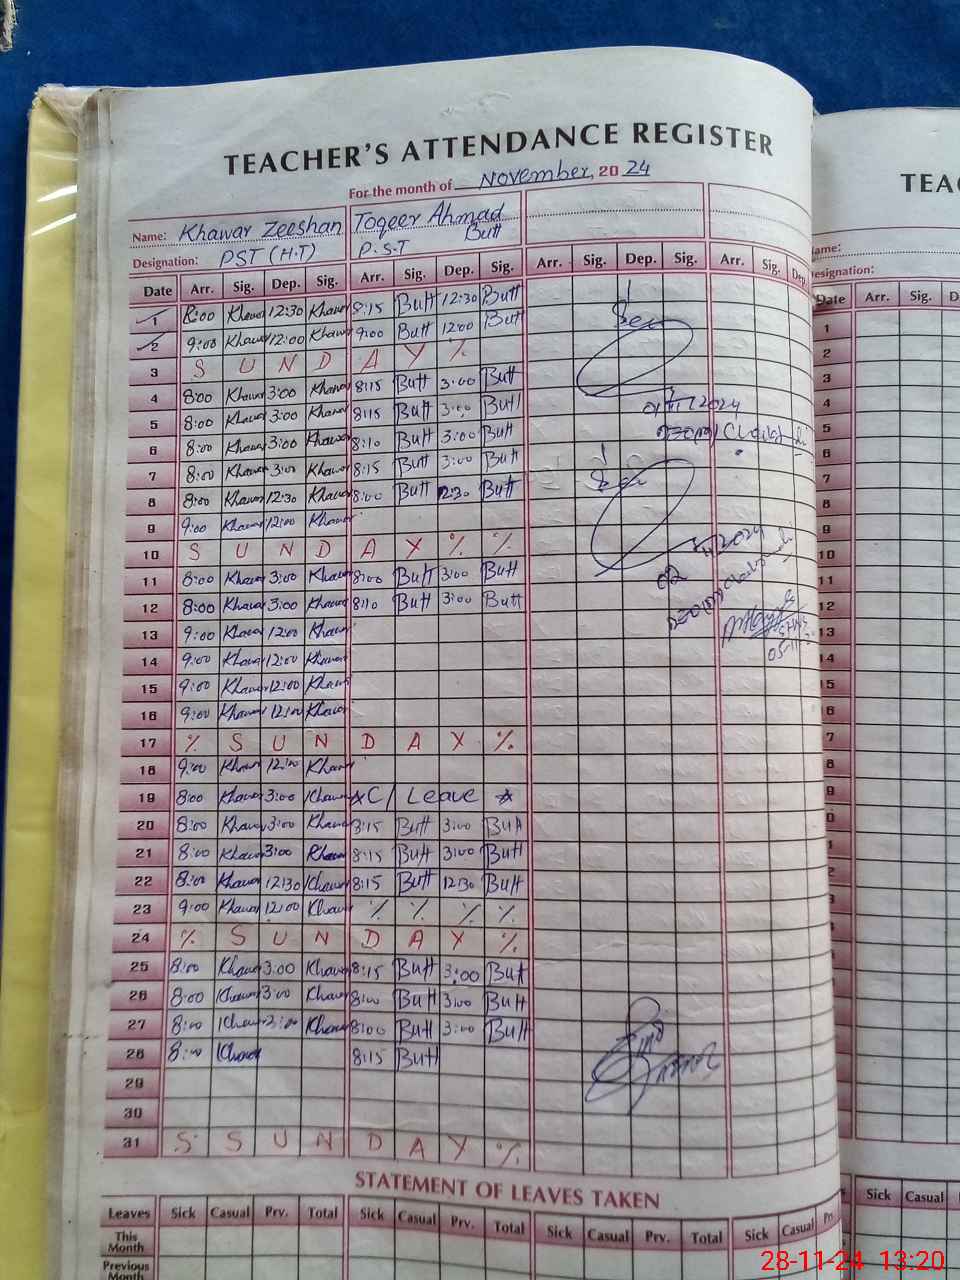 TEACHER'S ATTENDANCE REGISTER
For the month of November, 20 24
TEA
Name: Khawar Zeeshan Toqeer Ahmad Butt
Designation: PST (H.T) P.S.T
Date Arr. Sig. Dep. Sig. Arr. Sig. Dep. Sig. Arr. Sig. Dep. Sig. Arr. Sig. Dep.
1 8:00 Khawar 12:30 Khawar 8:15 Butt 12:30 Butt
2 9:00 Khawar 12:00 Khawar 9:00 Butt 12:00 Butt
3 S U N D A Y %
4 8:00 Khawar 3:00 Khawar 8:15 Butt 3:00 Butt
5 8:00 Khawar 3:00 Khawar 8:15 Butt 3:00 Butt
6 8:00 Khawar 3:00 Khawar 8:10 Butt 3:00 Butt
7 8:00 Khawar 3:00 Khawar 8:15 Butt 3:00 Butt
8 8:00 Khawar 12:30 Khawar 8:00 Butt 12:30 Butt
9 9:00 Khawar 12:00 Khawar
10 S U N D A Y % %
11 8:00 Khawar 3:00 Khawar 8:00 Butt 3:00 Butt
12 8:00 Khawar 3:00 Khawar 8:10 Butt 3:00 Butt
13 9:00 Khawar 12:00 Khawar
14 9:00 Khawar 12:00 Khawar
15 9:00 Khawar 12:00 Khawar
16 9:00 Khawar 12:00 Khawar
17 % S U N D A Y %
18 9:00 Khawar 12:00 Khawar
19 8:00 Khawar 3:00 Khawar C/ Leave
20 8:00 Khawar 3:00 Khawar 8:15 Butt 3:00 Butt
21 8:00 Khawar 3:00 Khawar 8:15 Butt 3:00 Butt
22 8:00 Khawar 12:30 Khawar 8:15 Butt 12:30 Butt
23 9:00 Khawar 12:00 Khawar % % % %
24 % S U N D A Y %
25 8:00 Khawar 3:00 Khawar 8:15 Butt 3:00 Butt
26 8:00 Khawar 3:00 Khawar 8:00 Butt 3:00 Butt
27 8:00 Khawar 3:00 Khawar 8:00 Butt 3:00 Butt
28 8:00 Khawar 8:15 Butt
29
30
31 S S U N D A Y %
STATEMENT OF LEAVES TAKEN
Leaves Sick Casual Prv. Total Sick Casual Prv. Total Sick Casual Prv. Total Sick Casual Prv.
This Month
Previous Month
ame:
esignation:
Date Arr. Sig. D
1
2
3
4
5
6
7
8
9
10
11
12
13
14
15
16
7
8
9
0
1
2
3
Sick Casual
28-11-24 13:20